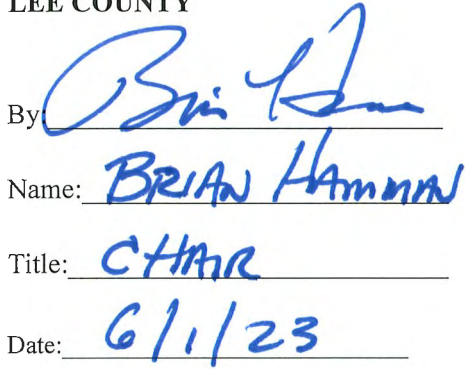 LEE COUNTY
By: Brian Hamman
Name: BRIAN HAMMAN
Title: CHAIR
Date: 6/1/23